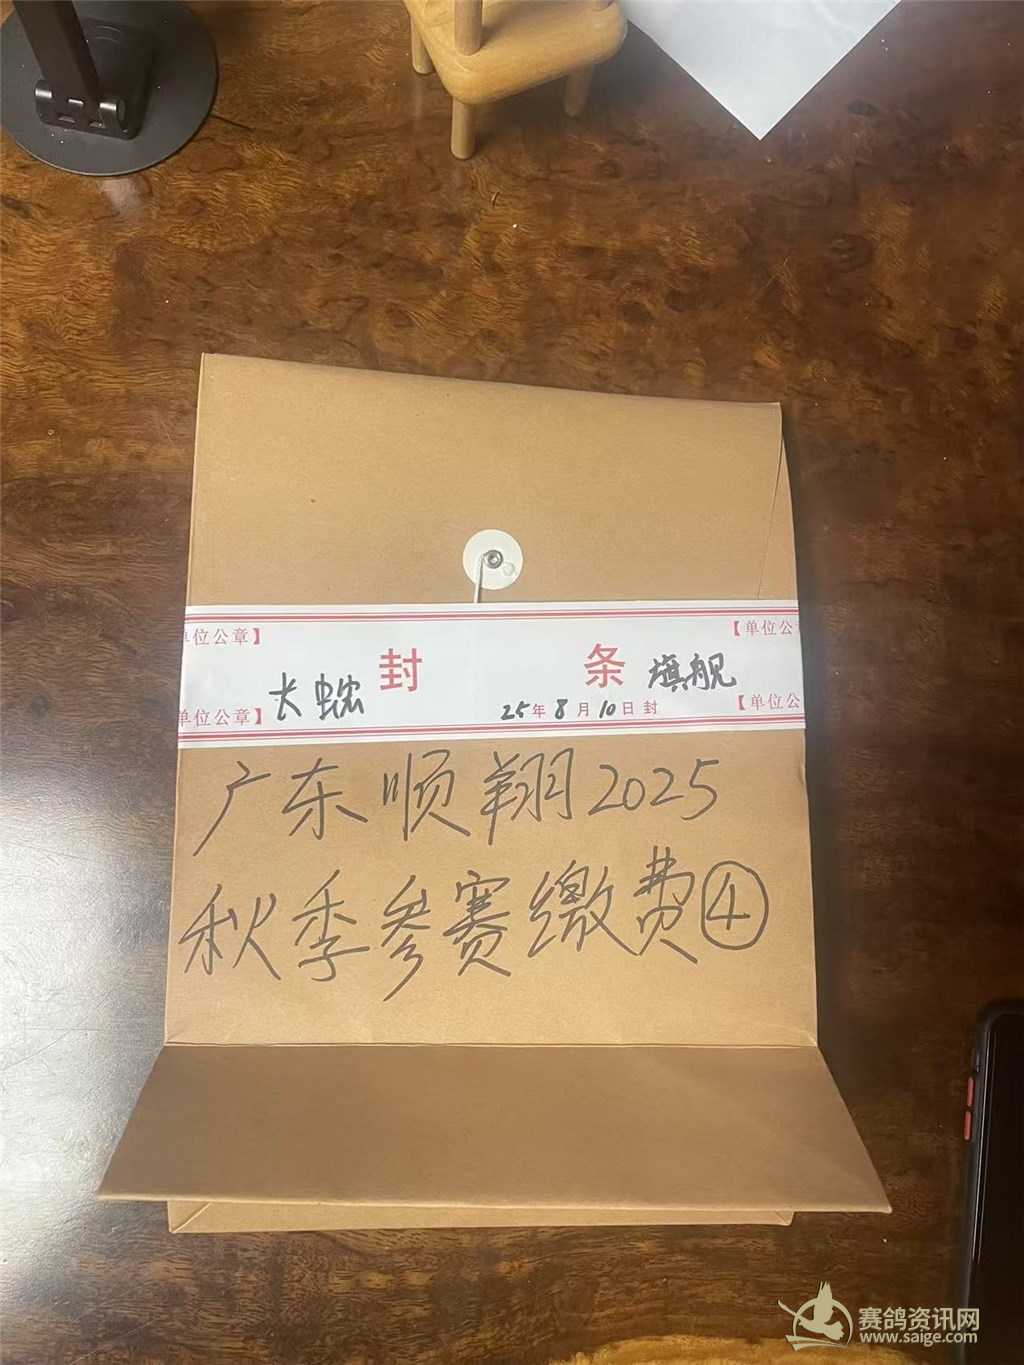 单位公章】
【单位公章
封 条
旗舰
长
单位公章】
25年8月10日封
【单位公
广东顺翔2025
秋季参赛缴费④
赛鸽资讯网
www.saige.com